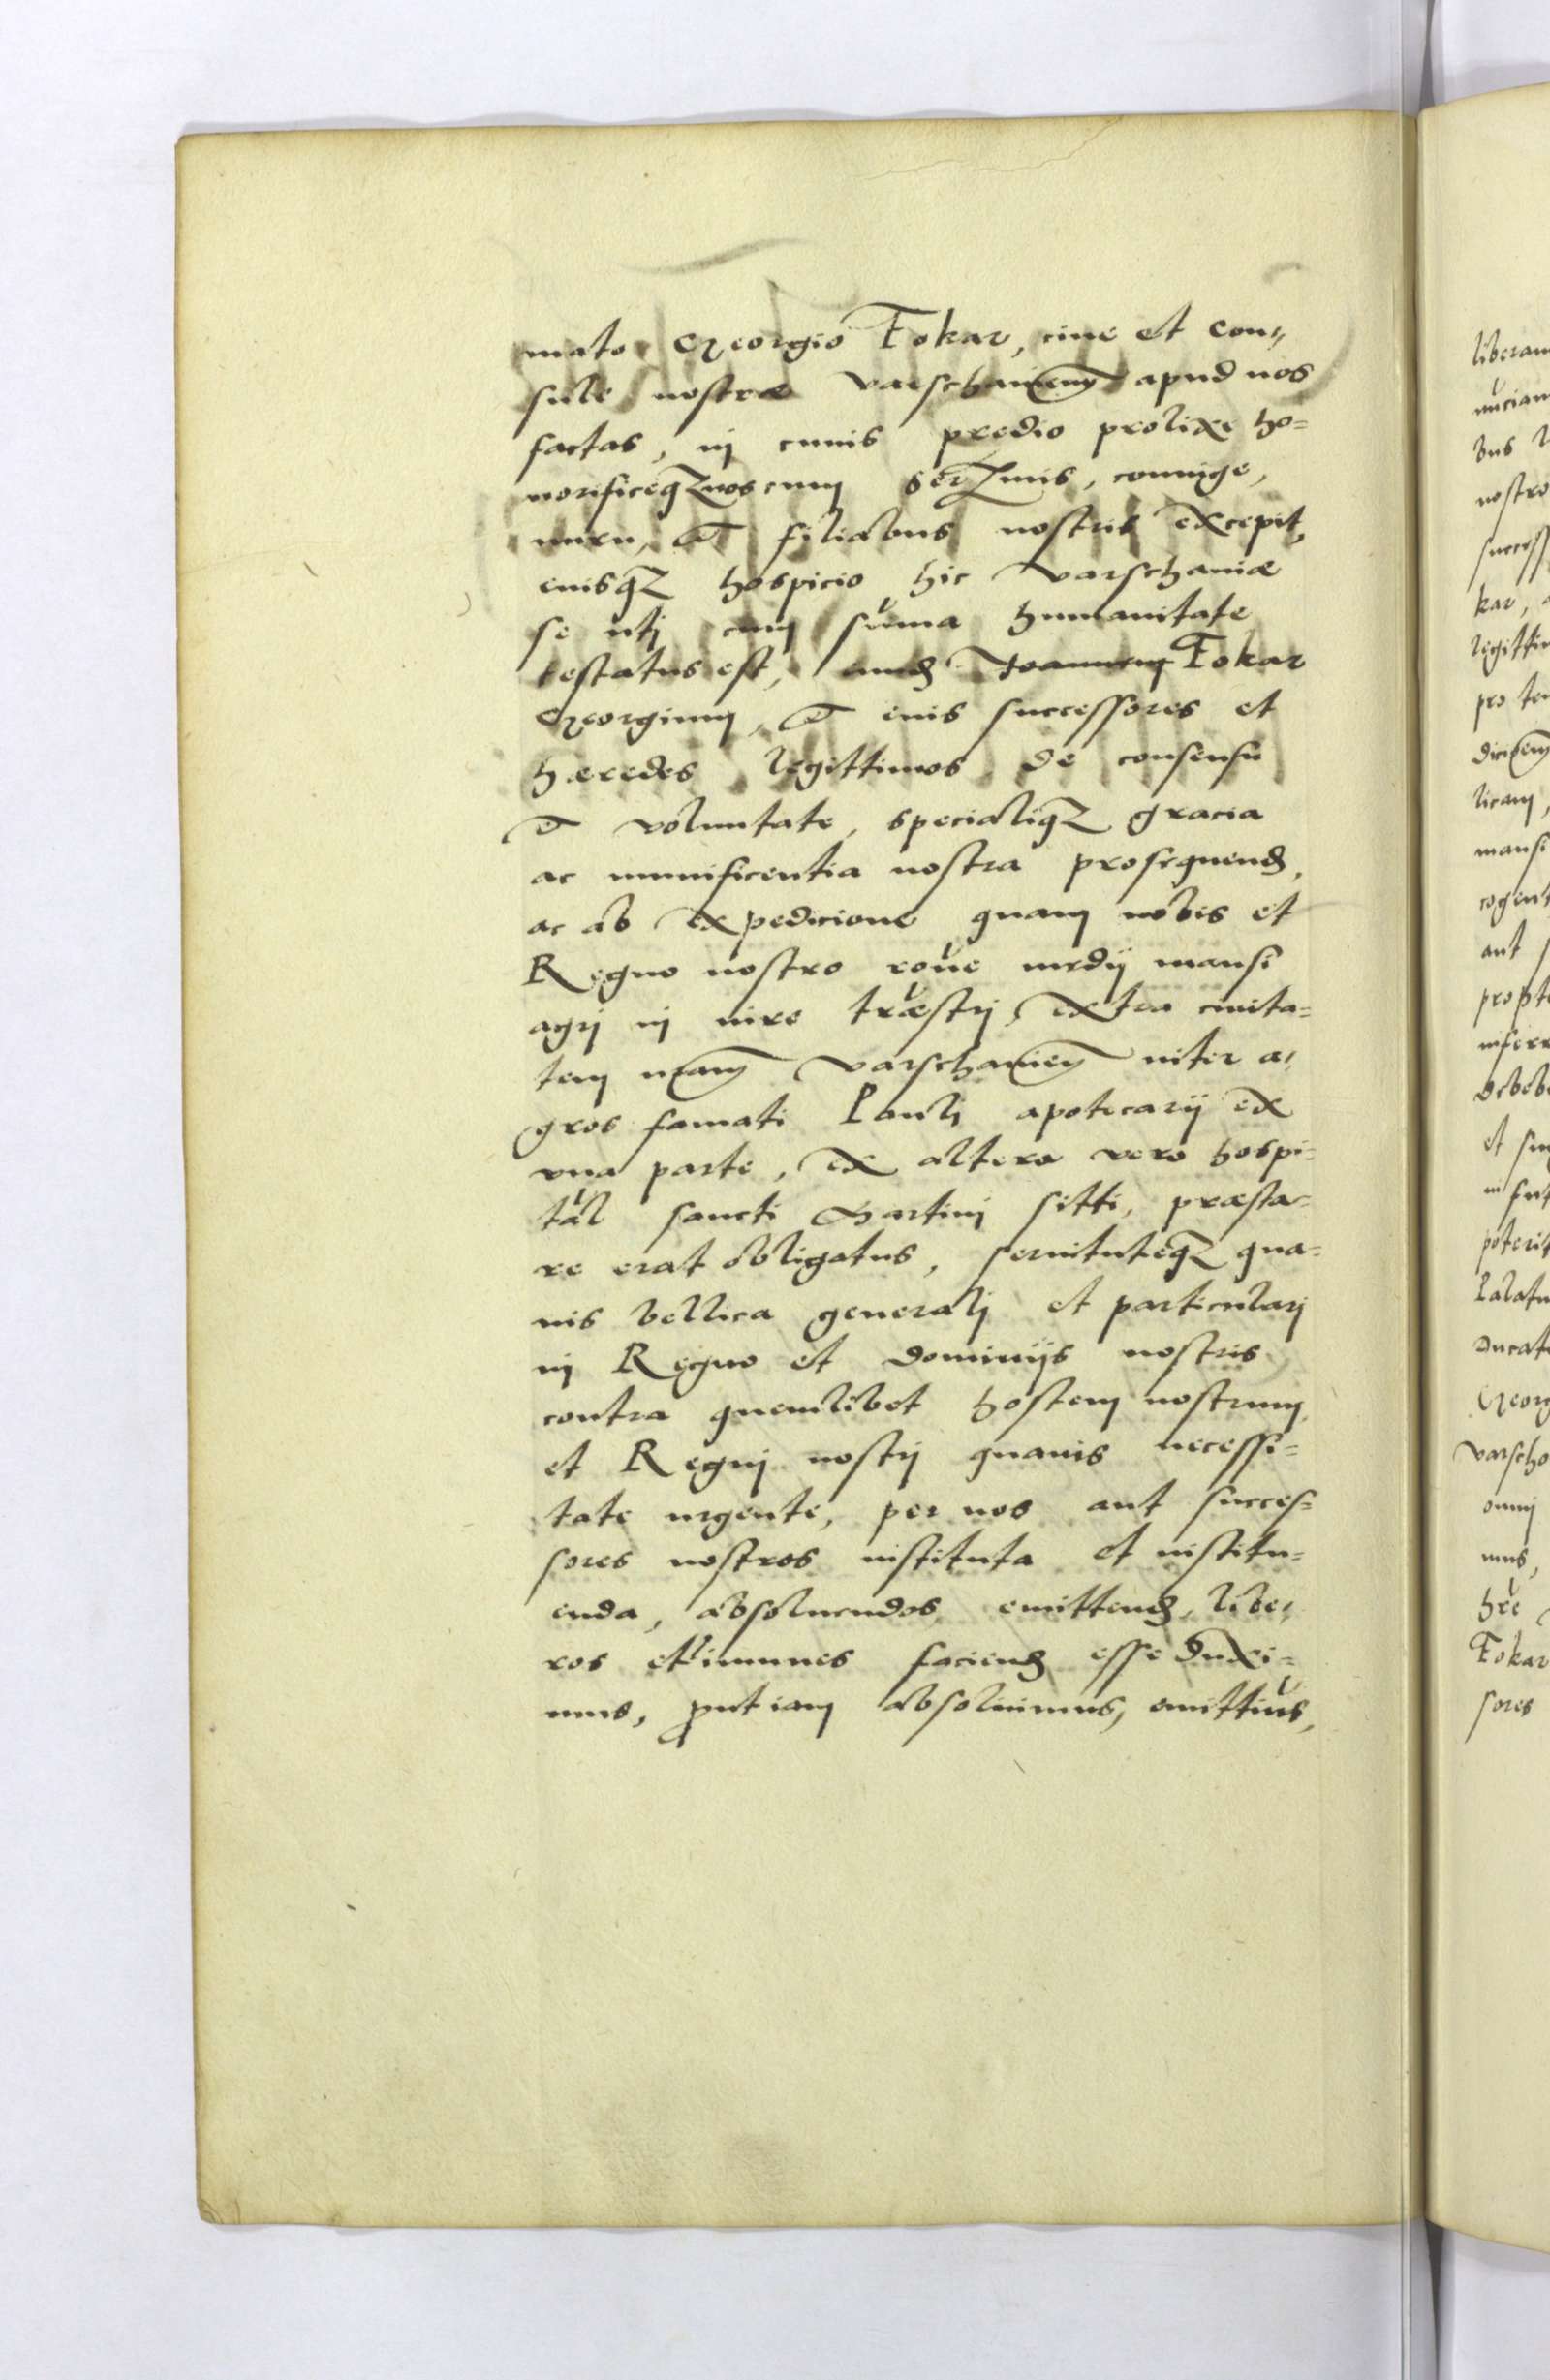 mato Georgio Fokar, ciue et con„
sule nostræ Varschauien̄ apud nos
factas, in cuius predio prolixe ho=
norificeq̃ nos cum Ser̃mis, coniuge,
nuru, et filiabus nostris excepit,
eiusq̃ hospicio hic Varschauiæ
se uti cum sum̃a humanitate
testatus est, eund Joannem Fokar
Georgium, et eius successores et
hæredes legittimos de consensu
et voluntate, specialiq̃ gracia
ac munificentia nostra prosequend,
ac ab expedicione quam nobis et
Regno nostro rõne medij mansi
agri in iure trãestri, extra ciuita=
tem nr̃am Varschauien̄ inter a„
gros famati Pauli apotecarij ex
vna parte, ex altera vero hospi=
tãl sancti Martini sitti, præsta=
re erat obligatus, seruituteq̃ qua=
uis bellica generali et particulari
in Regno et dominijs nostris
contra quemlibet hostem nostrum
et Regni nostri quauis necessi=
tate urgente, per nos aut succes=
sores nostros instituta et institu=
enda, absoluendos emittend, libe„
ros et im̃unes faciend esse duxi=
mus, ꝓut iam absoluimus, emittim̃s,
liberam
nuciam
bus
nostro
success
kar,
legittim
pro te
dicien̄
licam,
mansi
cogent
aut
propte
inferr
debeb
et
in fut
poterit
Palatu
Ducat
Georg
Varscha
omni
mus,
hrẽ
Fokar
sores